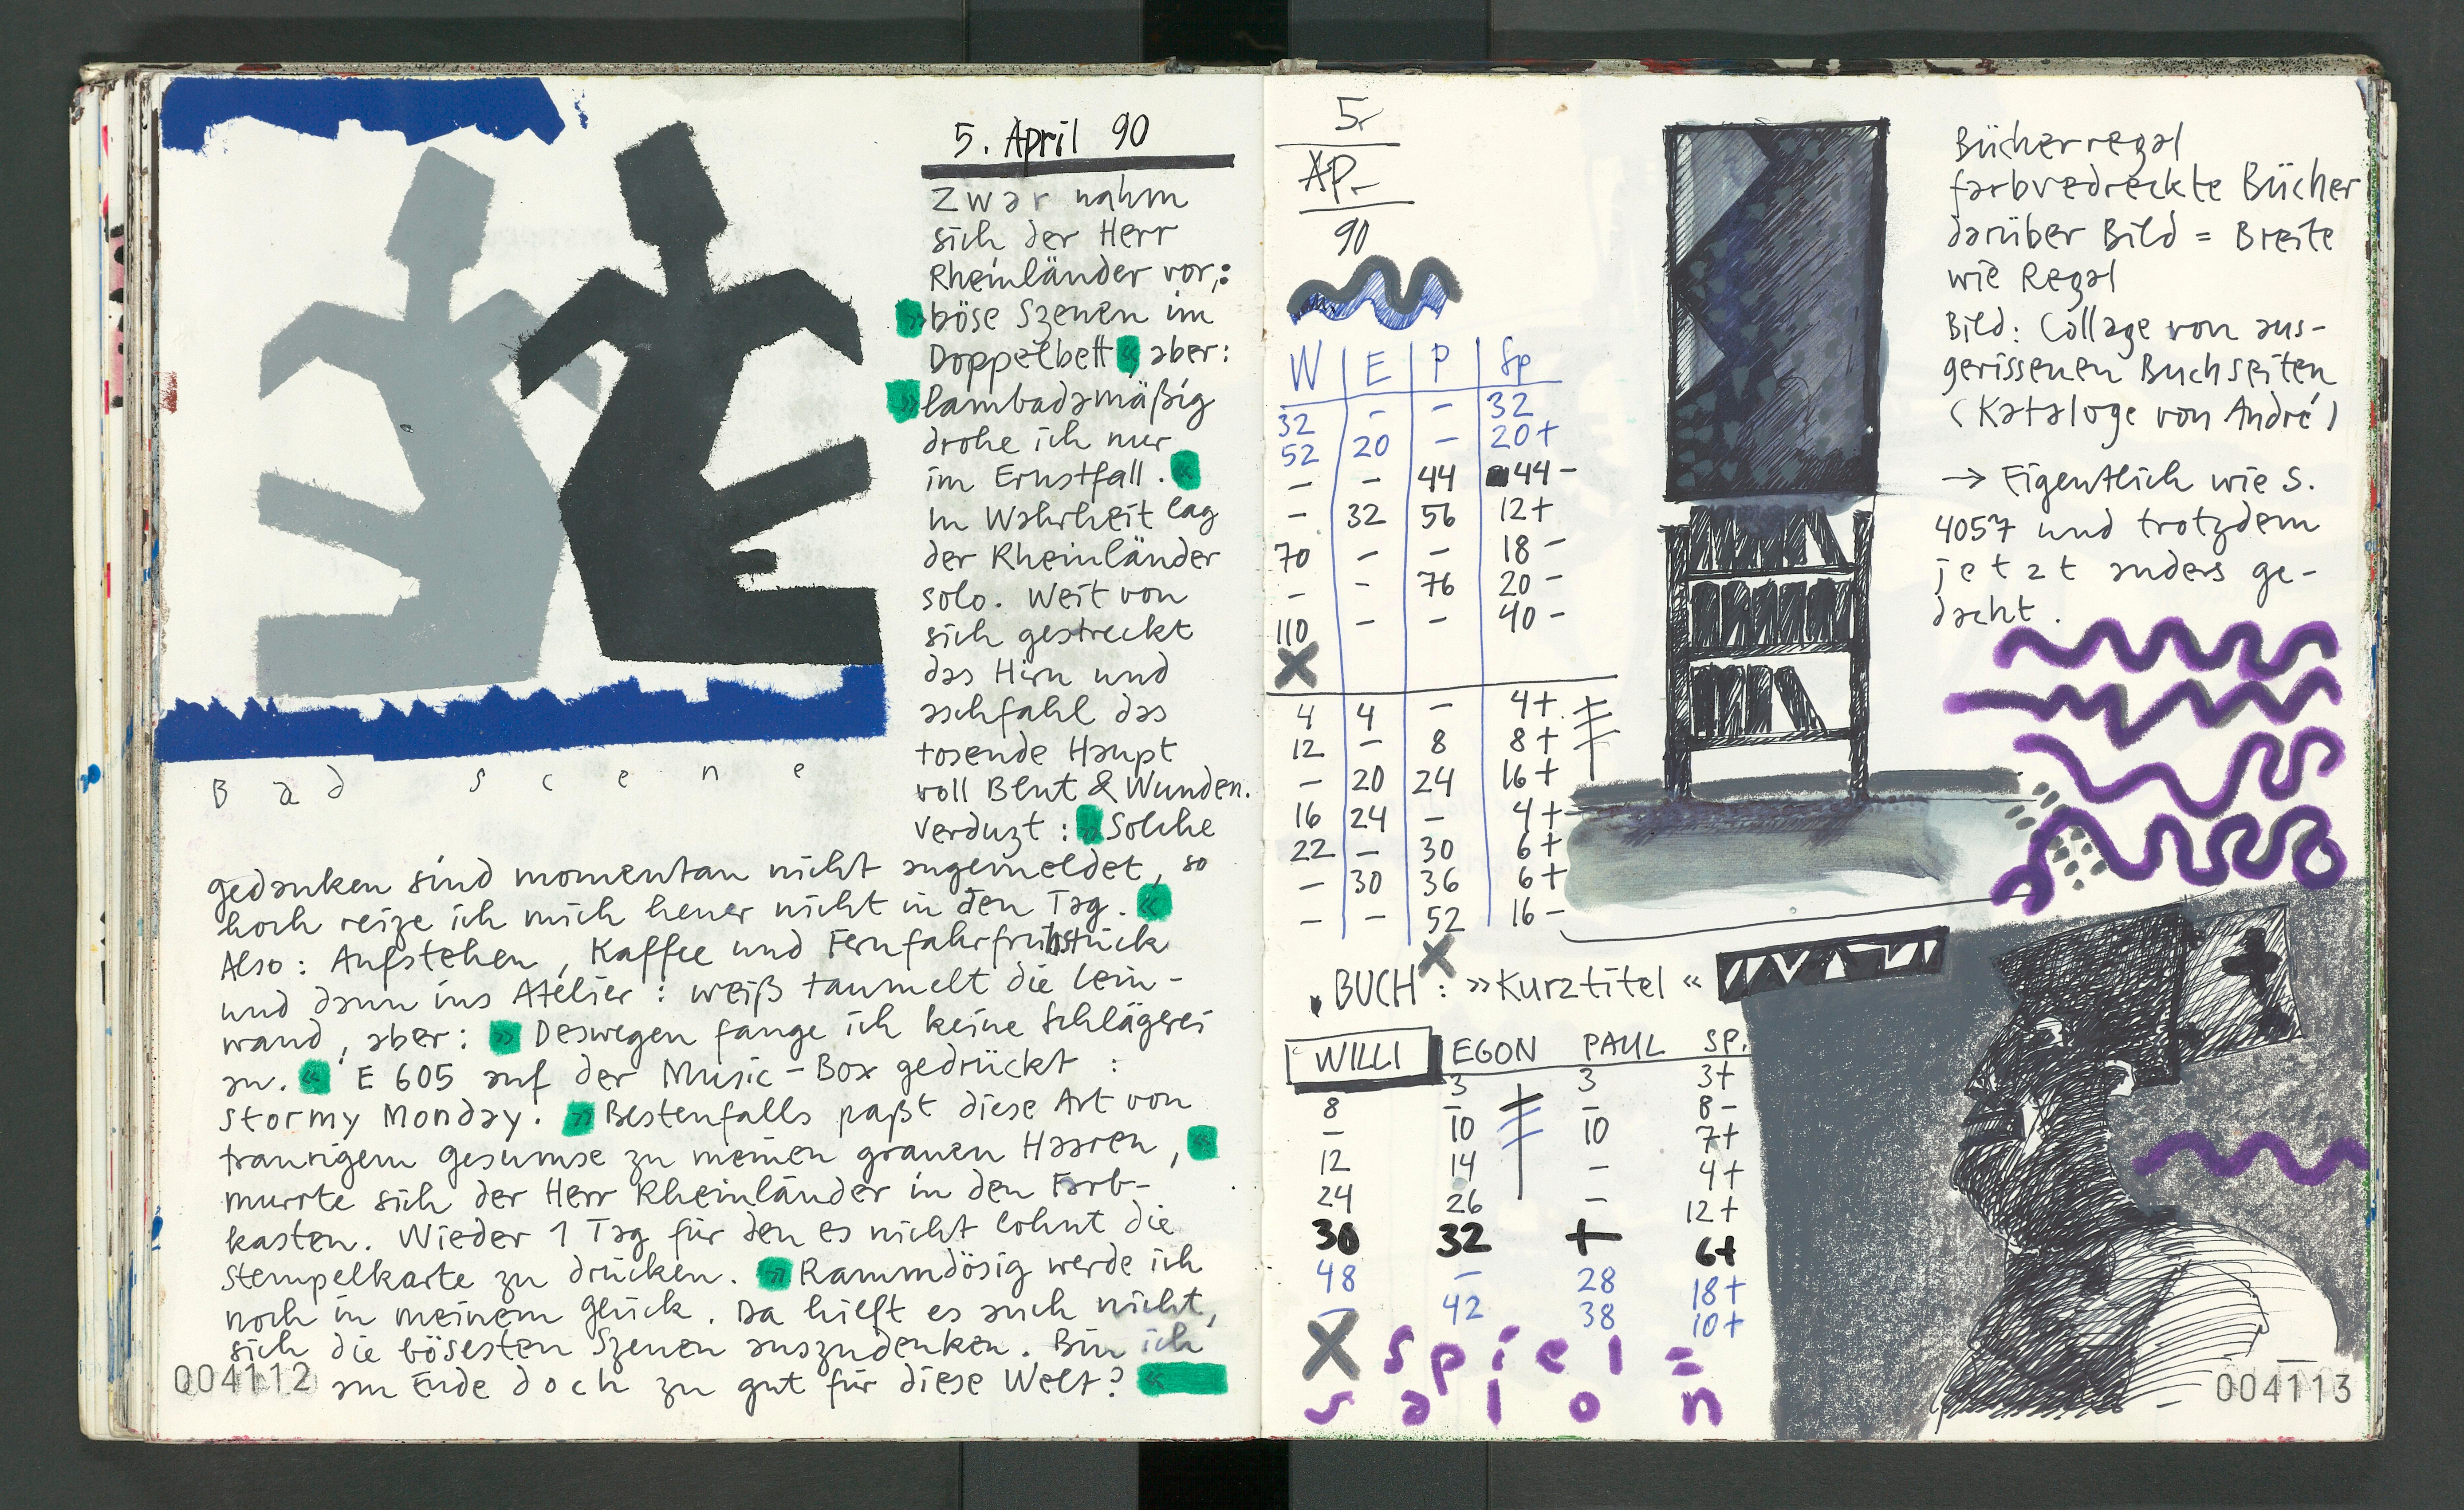 5. April 90
Zwar nahm
sich der Herr
Rheinländer vor,:
»böse Szenen im
Doppelbett«, aber:
»lambadamäßig
drohe ich nur
im Ernstfall.«
In Wahrheit lag
der Rheinländer
solo. Weit von
sich gestreckt
das Hirn und
aschfahl das
tosende Haupt
voll Blut & Wunden.
Verduzt: »Solche
gedanken sind momentan nicht angemeldet, so
hoch reize ich mich heuer nicht in den Tag.«
Also: Aufstehen, Kaffee und Fernfahrfrühstück
und dann ins Atelier: weiß taumelt die Lein-
wand, aber: »Deswegen fange ich keine Schlägerei
an.« E 605 auf der Music-Box gedrückt:
Stormy Monday. »Bestenfalls paßt diese Art von
traurigem Gesumse zu meinen grauen Haaren,«
murrte sich der Herr Rheinländer in den Farb-
kasten. Wieder 1 Tag für den es nicht lohnt die
Stempelkarte zu drücken. »Rammdösig werde ich
noch in meinem Glück. Da hilft es auch nicht,
sich die bösesten Szenen auszudenken. Bin ich
am Ende doch zu gut für diese Welt?«
Bad scene
004112
5.
AP.
90
W E P Sp
32 - - 32
52 20 - 20+
- - 44 44-
- 32 56 12+
70 - - 18-
- - 76 20-
110 - - 40-
X
4 4 - 4+
12 - 8 8+
- 20 24 16+
16 24 - 4+
22 - 30 6+
- 30 36 6+
- - 52 16-
X
Bücherregal
farbvedreckte Bücher
darüber Bild = Breite
wie Regal
Bild: Collage von aus-
gerissenen Buchseiten
(Kataloge von André)
→ Eigentlich wie S.
4057 und trotzdem
jetzt anders ge-
dacht.
. BUCH: »Kurztitel«
WILLI EGON PAUL SP.
3 3 3+
8 - - 8-
- 10 10 7+
12 14 - 4+
24 26 - 12+
30 32 + 6+
48 - 28 18+
- 42 38 10+
X Spiel=
salon
004113